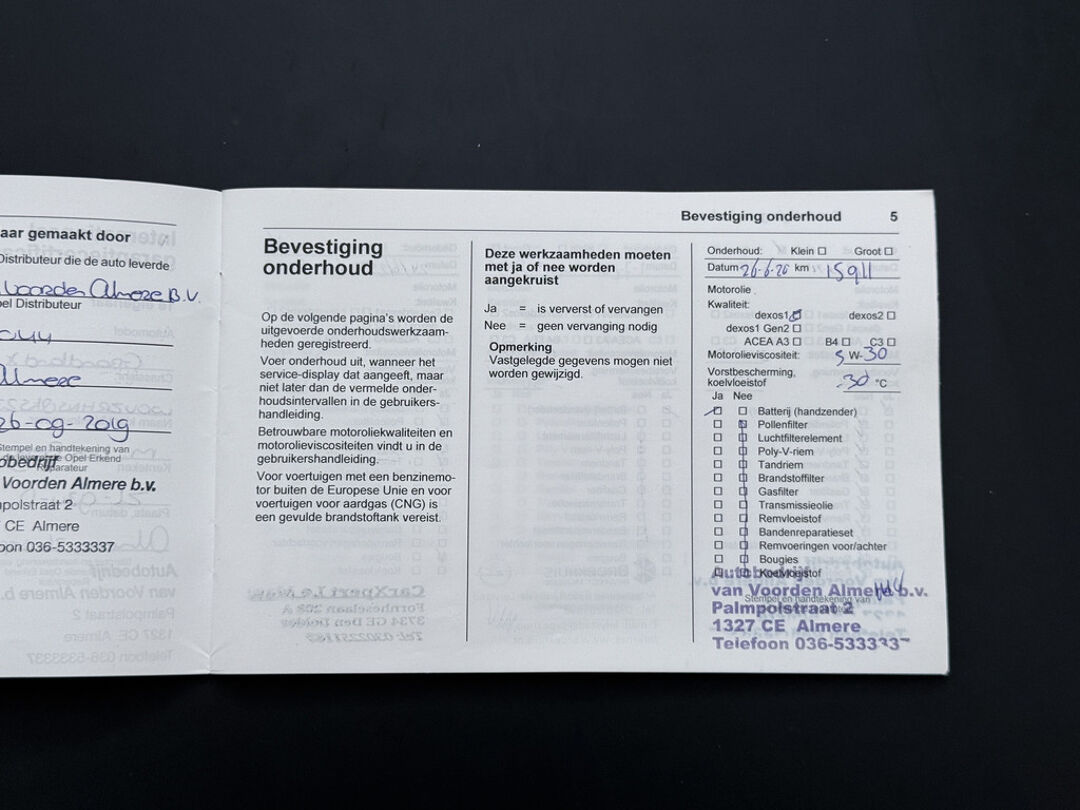 aar gemaakt door
Distributeur die de auto leverde
Voorden Almere B.V.
pel Distributeur
Almere
26-09-2019
Stempel en handtekening van
de leverende Opel Erkend
Reparateur
obedrijf
Voorden Almere b.v.
mpolstraat 2
CE Almere
oon 036-5333337
Bevestiging onderhoud 5
Bevestiging
onderhoud
Op de volgende pagina's worden de
uitgevoerde onderhoudswerkzaam-
heden geregistreerd.
Voer onderhoud uit, wanneer het
service-display dat aangeeft, maar
niet later dan de vermelde onder-
houdsintervallen in de gebruikers-
handleiding.
Betrouwbare motoroliekwaliteiten en
motorolieviscositeiten vindt u in de
gebruikershandleiding.
Voor voertuigen met een benzinemo-
tor buiten de Europese Unie en voor
voertuigen voor aardgas (CNG) is
een gevulde brandstoftank vereist.
Deze werkzaamheden moeten
met ja of nee worden
aangekruist
Ja = is ververst of vervangen
Nee = geen vervanging nodig
Opmerking
Vastgelegde gegevens mogen niet
worden gewijzigd.
Onderhoud: Klein Groot
Datum 26-6-20 km 15911
Motorolie
Kwaliteit:
dexos1 dexos2
dexos1 Gen2
ACEA A3 B4 C3
Motorolieviscositeit: 5 W-30
Vorstbescherming,
koelvloeistof -30 °C
Ja Nee
Batterij (handzender)
Pollenfilter
Luchtfilterelement
Poly-V-riem
Tandriem
Brandstoffilter
Gasfilter
Transmissieolie
Remvloeistof
Bandenreparatieset
Remvoeringen voor/achter
Bougies
Koelvloeistof
Stempel en handtekening van
Autobedrijf
van Voorden Almere b.v.
Palmpolstraat 2
1327 CE Almere
Telefoon 036-533333